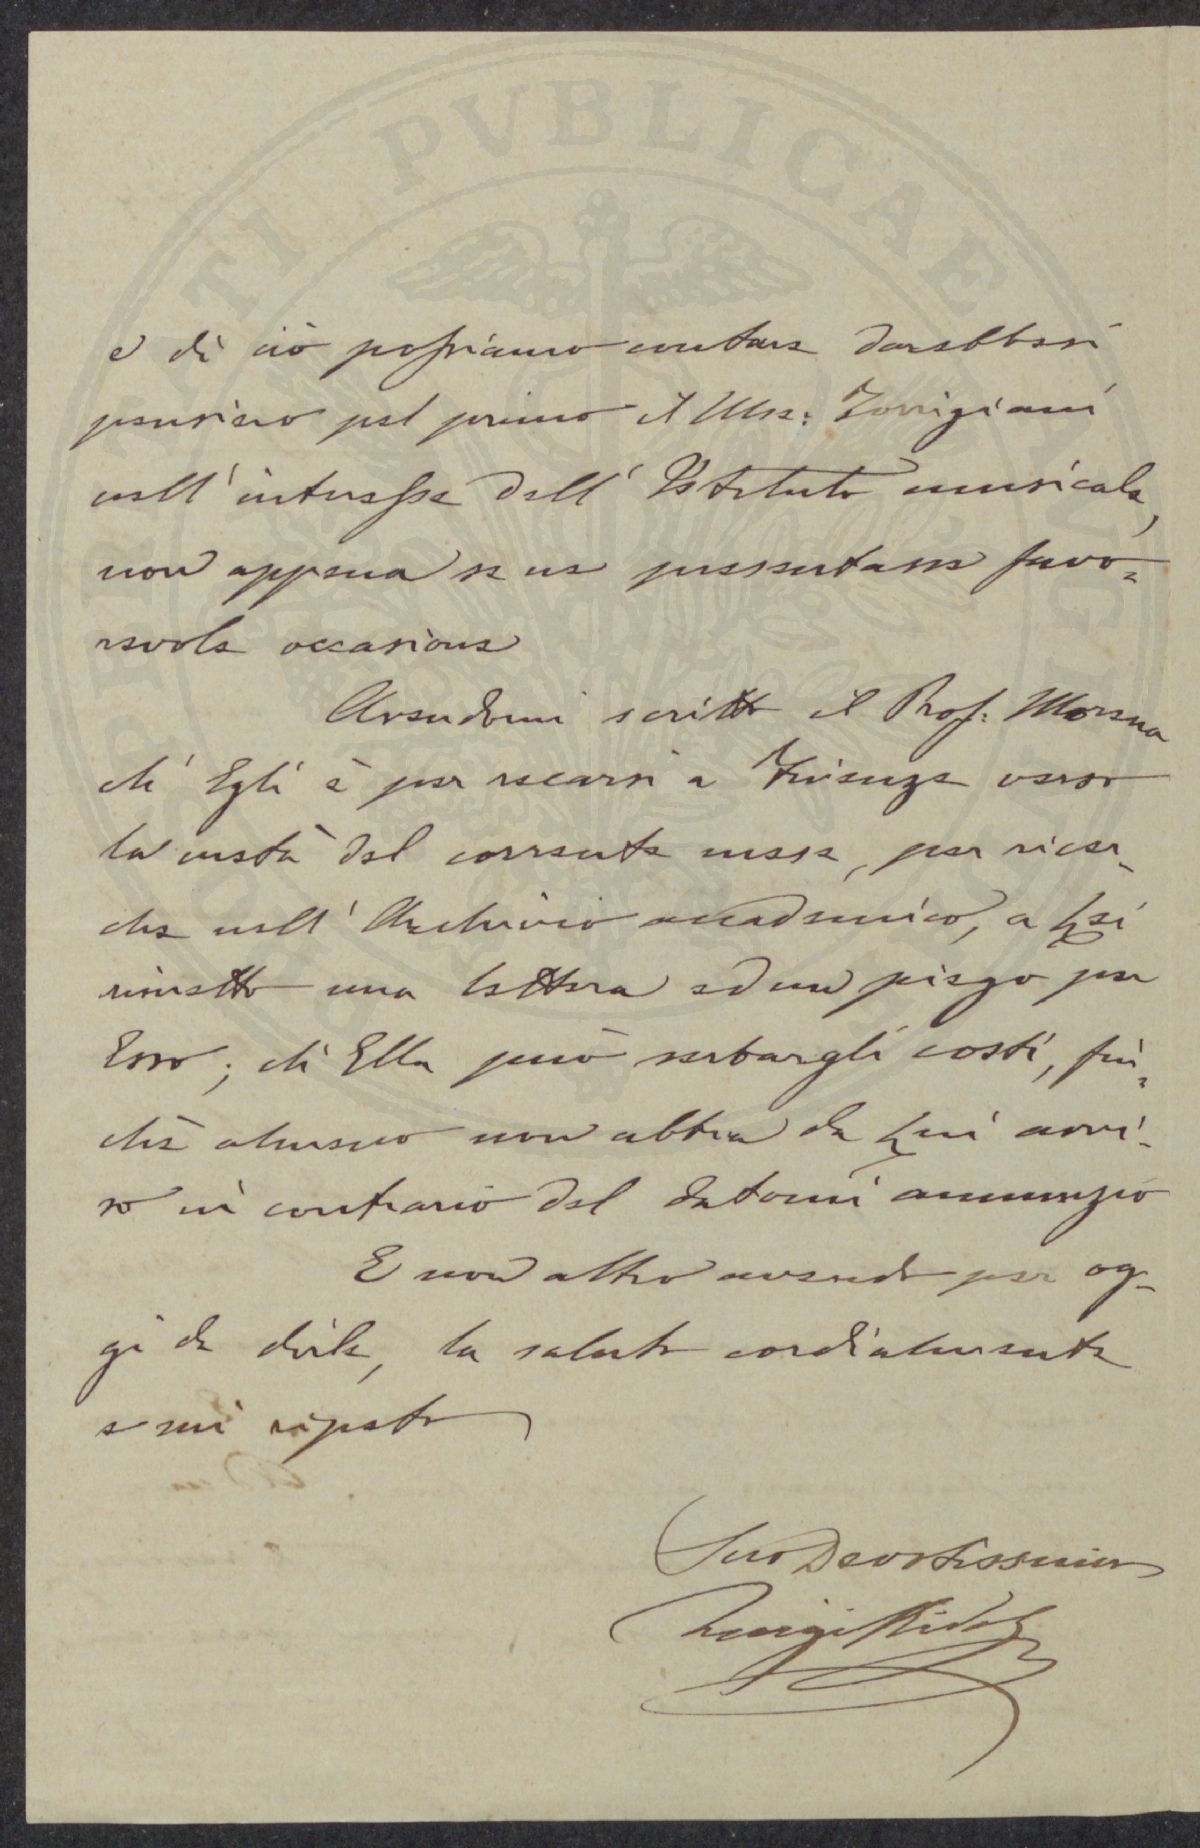 PVBLICAE
e di ciò possiamo contare darebbesi
pensiero pel primo il Mse: Torrigiani
nell' interesse dell' Istituto musicale,
non appena se ne presentasse favo=
revole occasione
Avendomi scritto il Prof: Morsua
ch' Egli è per recarsi a Firenze verso
la metà del corrente mese, per ricer=
che nell' Archivio accademico, a Lei
rimetto una lettera ed un piego per
Esso; ch' Ella può serbargli costì, fin=
chè almeno non abbia da Lui avvi=
so in contrario del datomi annunzio
E non altro avendo per og=
gi da dirle, la saluto cordialmente
e mi ripeto
Suo Devotissimo
Luigi